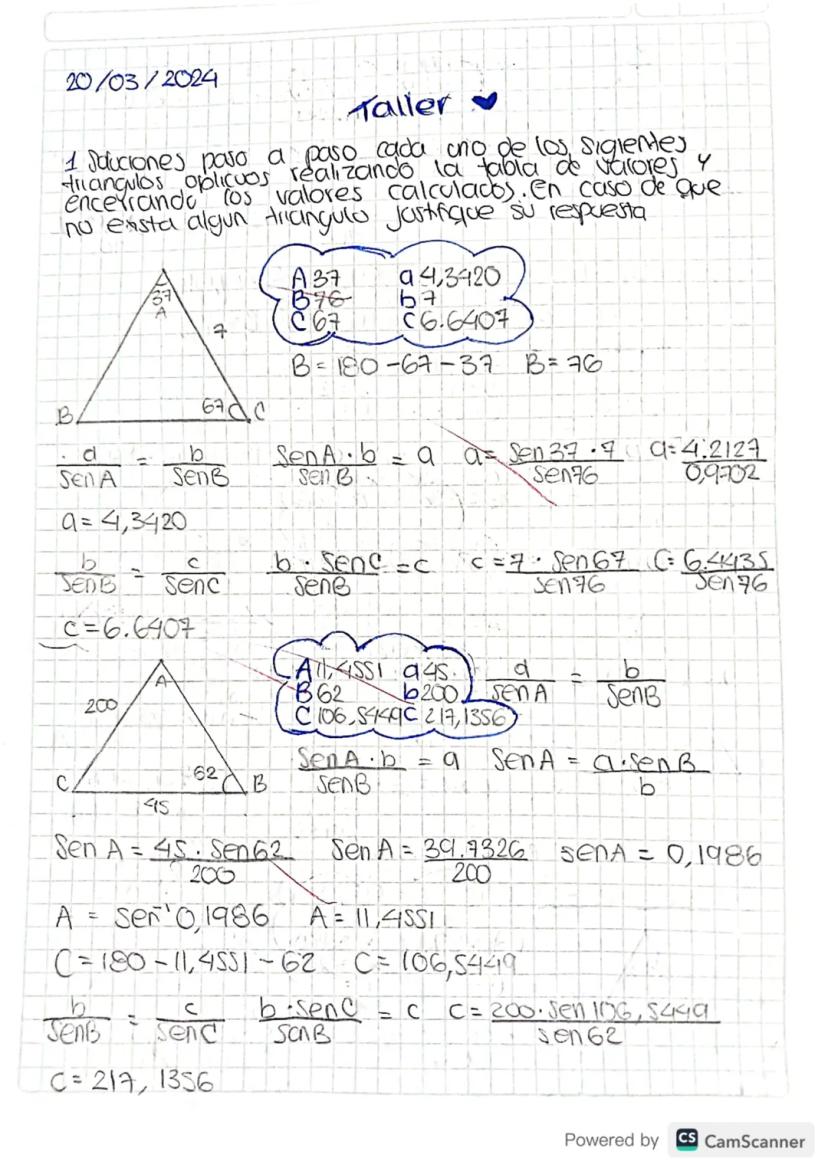 20/03/2024
Taller
1 Soluciones paso a paso cada uno de los sigientes
triangulos oplicuos realizando la tabla de valores y
encerrando los valores calculados. En caso de que
no exista algun triangulo justifique su respuesta
A 37 a 4,3420
B 76 b 7
C 67 c 6.6407
37
A
7
B = 180 - 67 - 37 B = 76
B 67 C
a/SenA = b/SenB SenA · b/SenB = a a = Sen37 · 7/Sen76 a = 4.2127/0,9702
a = 4,3420
b/SenB = c/SenC b · SenC/SenB = c c = 7 · Sen67/Sen76 C = 6.4435/Sen76
c = 6.6407
A 11,4551 a 45
B 62 b 200
C 106,5449 c 217,1356
a/SenA = b/SenB
A
200
C 62 B
45
SenA · b/SenB = a SenA = a · SenB/b
Sen A = 45 · Sen62/200 Sen A = 39.7326/200 senA = 0,1986
A = Sen⁻¹ 0,1986 A = 11,4551
C = 180 - 11,4551 - 62 C = 106,5449
b/SenB = c/SenC b · SenC/SenB = c C = 200 · Sen 106,5449/Sen 62
C = 217, 1356
Powered by CS CamScanner